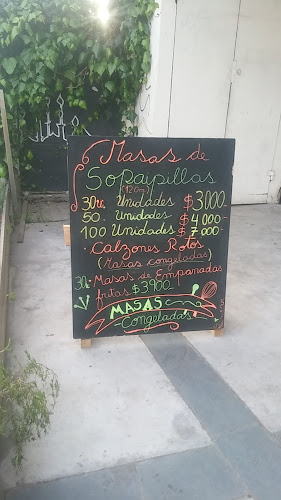 Masas de
Sopaipillas
30 Unidades $3000-
50. Unidades $4000-
100 Unidades $7000-
. Calzones Rotos
(Masas congeladas)
30- Masas de Empanadas
fritas $3900-
MASAS
Congeladas